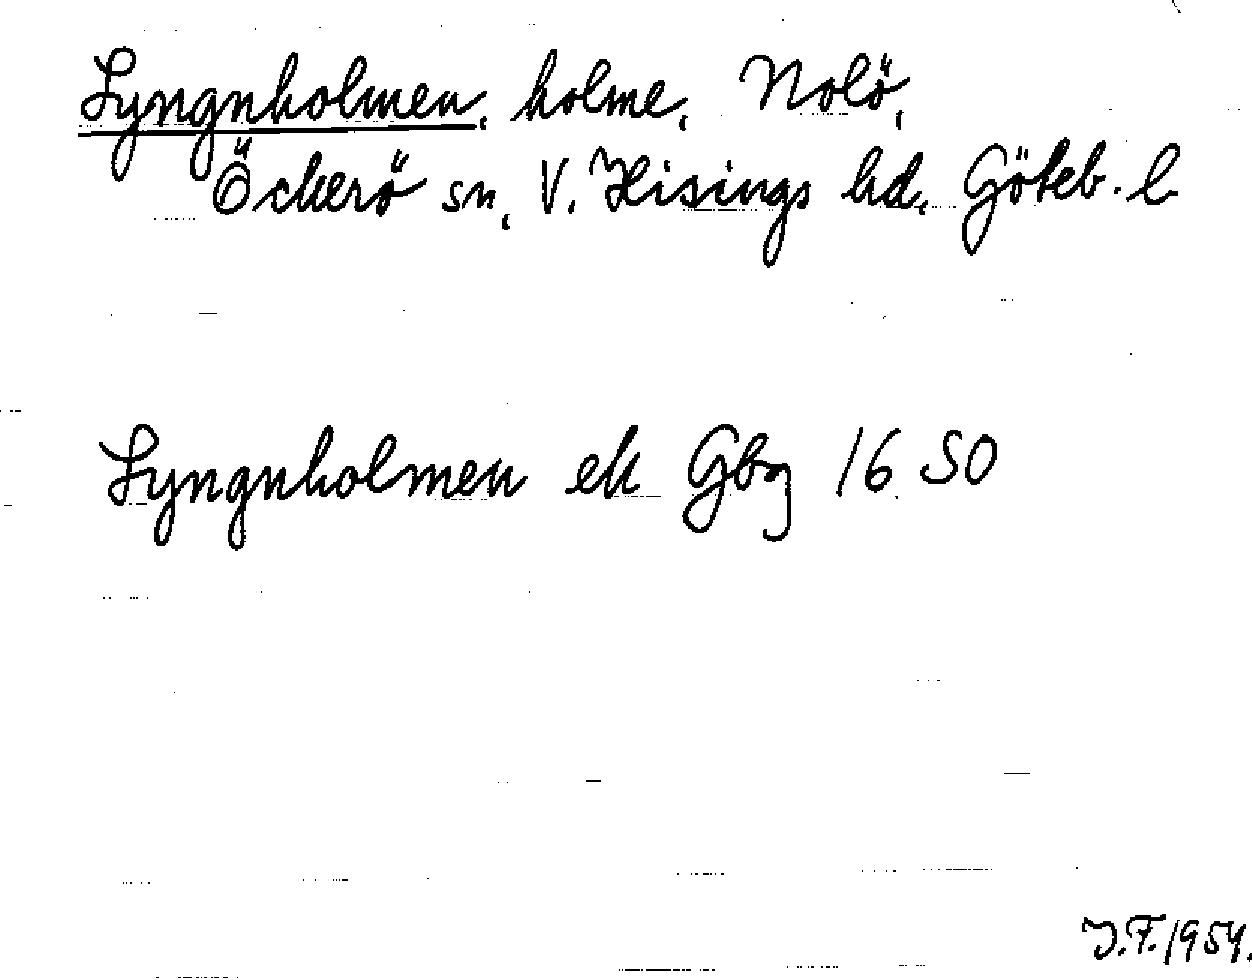 Lyngnholmen, holme, Nolö,
Öckerö sn, V. Hisings hd, Göteb. l
Lyngnholmen ek Gbg 16 SO
J.F. 1954.